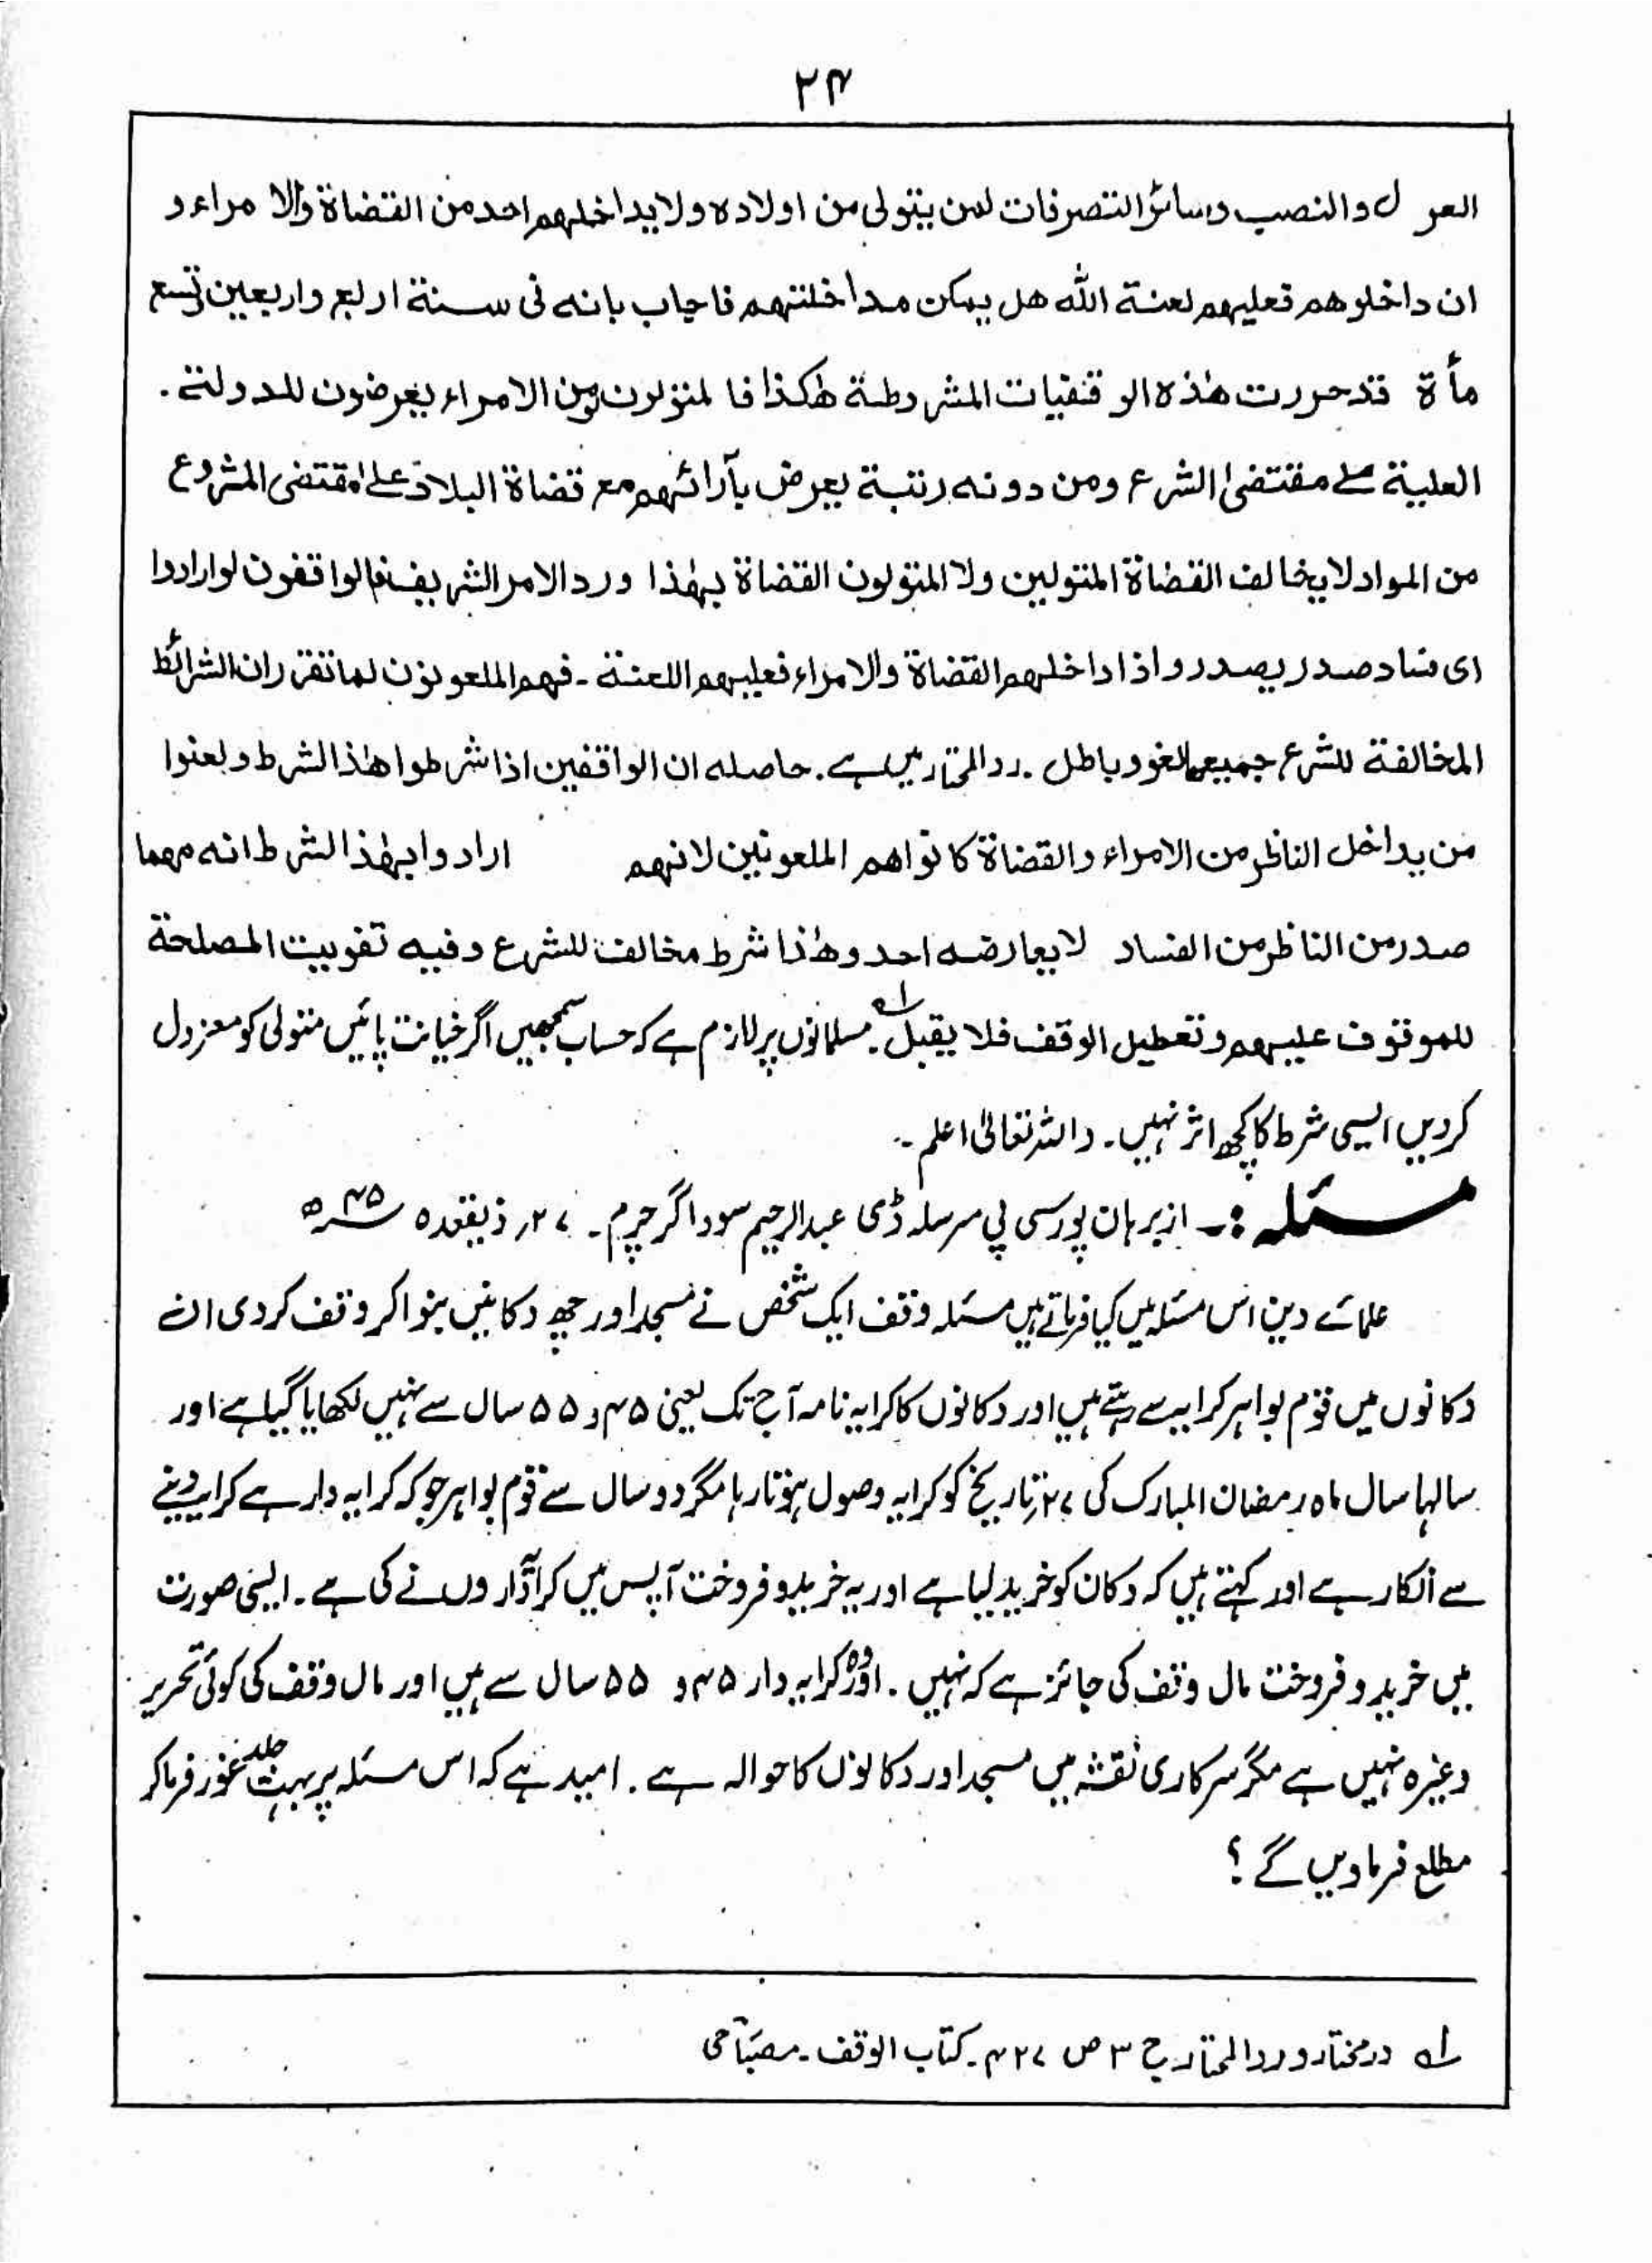 ۲۴
العزل والنصب وسائر التصرفات لمن يتولى من اولاده ولا يداخلهم احد من القضاة والا مراء و
ان داخلوهم فعليهم لعنة الله هل يمكن مداخلتهم فاجاب بانه فى سنة اربع واربعين تسع
مأة قد حررت هذه الوقفيات المشروطة هكذا فالمتولون من الامراء يعرضون للدولة .
العلية على مقتضى الشرع ومن دونه رتبة يعرض بآرائهم مع قضاة البلاد على مقتضى المشروع
من المواد لا يخالف القضاة المتولين ولا المتولون القضاة بهذا ورد الامر الشريف فالواقفون لو ارادوا
اى فساد صدر يصدر واذا داخلهم القضاة والامراء فعليهم اللعنة ۔ فهم الملعونون لما تقرر ان الشرائط
المخالفة للشرع جميعها لغو وباطل ۔ ردالمحتار میں ہے ۔ حاصله ان الواقفين اذا شرطوا هذا الشرط ولعنوا
من يداخل الناظر من الامراء والقضاة كانوا هم الملعونين لانهم ارادوا بهذا الشرط انه مهما
صدر من الناظر من الفساد لا يعارضه احد وهذا شرط مخالف للشرع وفيه تفويت المصلحة
للموقوف عليهم وتعطيل الوقف فلا يقبل ۔ لہ مسلمانوں پر لازم ہے کہ حساب سمجھیں اگر خیانت پائیں متولی کو معزول
کردیں ایسی شرط کا کچھ اثر نہیں ۔ واللہ تعالیٰ اعلم ۔
مسئلہ :۔ از برہان پور سی پی مرسلہ ڈی عبدالرحیم سوداگر چرم ۔ ۲۷؍ ذیقعدہ ۴۵ھ
علمائے دین اس مسئلہ میں کیا فرماتے ہیں مسئلہ وقف ایک شخص نے مسجد اور چھ دکانیں بنوا کر وقف کردی ان
دکانوں میں قوم بواہر کرایہ سے رہتے ہیں اور دکانوں کا کرایہ نامہ آج تک یعنی ۴۵ و ۵۵ سال سے نہیں لکھایا گیا ہے اور
سالہا سال ماہ رمضان المبارک کی ۲۷ تاریخ کو کرایہ وصول ہوتا رہا مگر دو سال سے قوم بواہر جو کہ کرایہ دار ہے کرایہ دینے
سے انکار ہے اور کہتے ہیں کہ دکان کو خرید لیا ہے اور یہ خرید و فروخت آپس میں کرآداروں نے کی ہے ۔ ایسی صورت
میں خرید و فروخت مال وقف کی جائز ہے کہ نہیں ۔ اور وہ کرایہ دار ۴۵ و ۵۵ سال سے ہیں اور مال وقف کی کوئی تحریر
وغیرہ نہیں ہے مگر سرکاری نقشہ میں مسجد اور دکانوں کا حوالہ ہے ۔ امید ہے کہ اس مسئلہ پر بہت جلد غور فرما کر
مطلع فرماویں گے ؟
لہ درمختار و ردالمحتار ج ۳ ص ۴۲۷ ۔ کتاب الوقف ۔ مصباحی